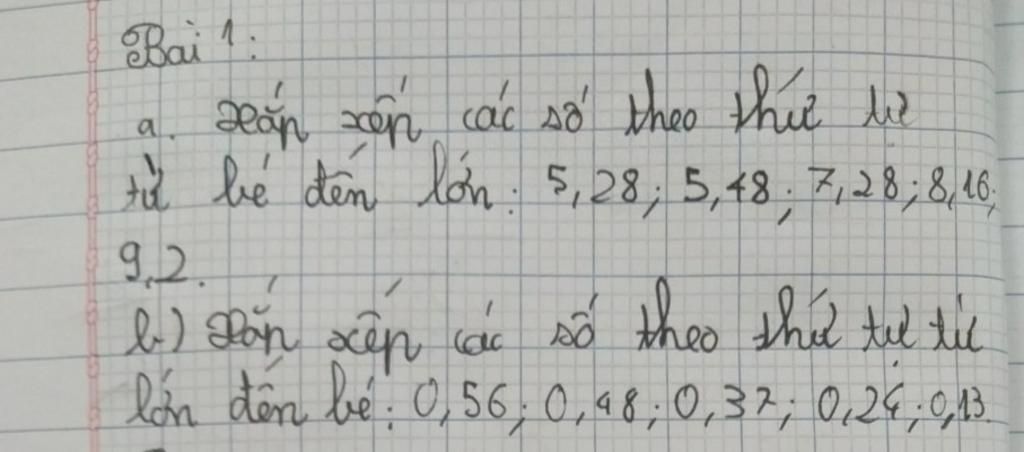 Bài 1:
a. Xắp xếp các số theo thứ tự
từ bé đến lớn: 5,28; 5,48; 7,28; 8,16;
9,2.
b.) Xắp xếp các số theo thứ tự từ
lớn đến bé: 0,56; 0,48; 0,37; 0,24; 0,13.